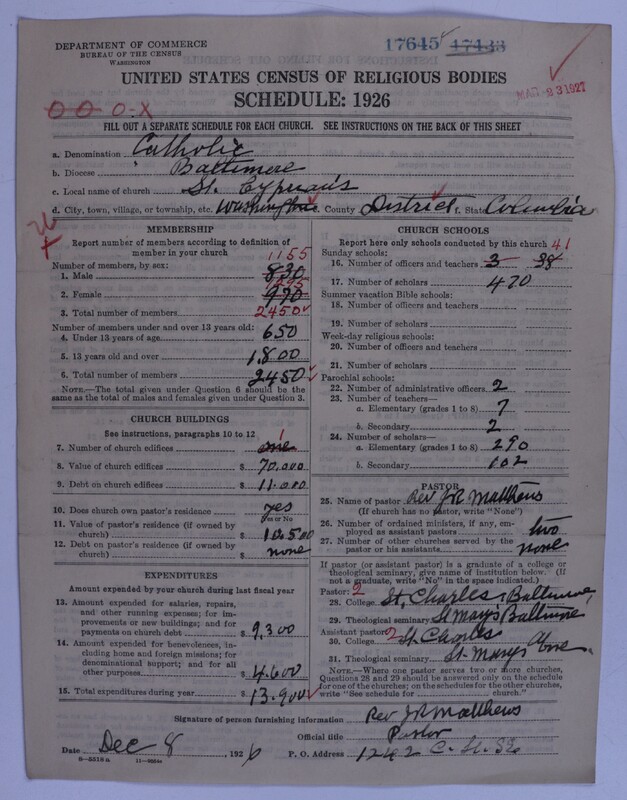 DEPARTMENT OF COMMERCE
BUREAU OF THE CENSUS
WASHINGTON
17645 17433
UNITED STATES CENSUS OF RELIGIOUS BODIES
SCHEDULE: 1926
MAR 23 1927
0 0 0-X
FILL OUT A SEPARATE SCHEDULE FOR EACH CHURCH. SEE INSTRUCTIONS ON THE BACK OF THIS SHEET
a. Denomination Catholic
b. Diocese Baltimore
c. Local name of church St. Cyprian's
d. City, town, village, or township, etc. Washington e. County District f. State Columbia
MEMBERSHIP
Report number of members according to definition of member in your church
Number of members, by sex: 1155
1. Male 830
1295
2. Female 970
3. Total number of members 2450
Number of members under and over 13 years old:
4. Under 13 years of age 650
5. 13 years old and over 1,800
6. Total number of members 2450
NOTE.—The total given under Question 6 should be the same as the total of males and females given under Question 3.
CHURCH BUILDINGS
See instructions, paragraphs 10 to 12
7. Number of church edifices one 1
8. Value of church edifices $ 70.000
9. Debt on church edifices $ 11.000
10. Does church own pastor's residence yes
Yes or No
11. Value of pastor's residence (if owned by church) $ 10.500
12. Debt on pastor's residence (if owned by church) $ none
EXPENDITURES
Amount expended by your church during last fiscal year
13. Amount expended for salaries, repairs, and other running expenses; for improvements or new buildings; and for payments on church debt $ 9,300
14. Amount expended for benevolences, including home and foreign missions; for denominational support; and for all other purposes $ 4.600
15. Total expenditures during year $ 13.900
CHURCH SCHOOLS
Report here only schools conducted by this church 41
Sunday schools:
16. Number of officers and teachers 3 38
17. Number of scholars 470
Summer vacation Bible schools:
18. Number of officers and teachers
19. Number of scholars
Week-day religious schools:
20. Number of officers and teachers
21. Number of scholars
Parochial schools:
22. Number of administrative officers 2
23. Number of teachers—
a. Elementary (grades 1 to 8) 7
b. Secondary 2
24. Number of scholars—
a. Elementary (grades 1 to 8) 290
b. Secondary 102
PASTOR
25. Name of pastor Rev J R Matthews
(If church has no pastor, write "None")
26. Number of ordained ministers, if any, employed as assistant pastors two
27. Number of other churches served by the pastor or his assistants none
If pastor (or assistant pastor) is a graduate of a college or theological seminary, give name of institution below. (If not a graduate, write "No" in the space indicated.)
Pastor: 2
28. College St. Charles, Baltimore
29. Theological seminary St Mary's Baltimore
Assistant pastor: 2
30. College St Charles
31. Theological seminary St. Mary's
NOTE.—Where one pastor serves two or more churches, Questions 28 and 29 should be answered only on the schedule for one of the churches; on the schedules for the other churches, write "See schedule for church."
Signature of person furnishing information Rev J R Matthews
Official title Pastor
Date Dec 8, 1926 P. O. Address 1242 C. St. SE
8—5518a 11—9864a